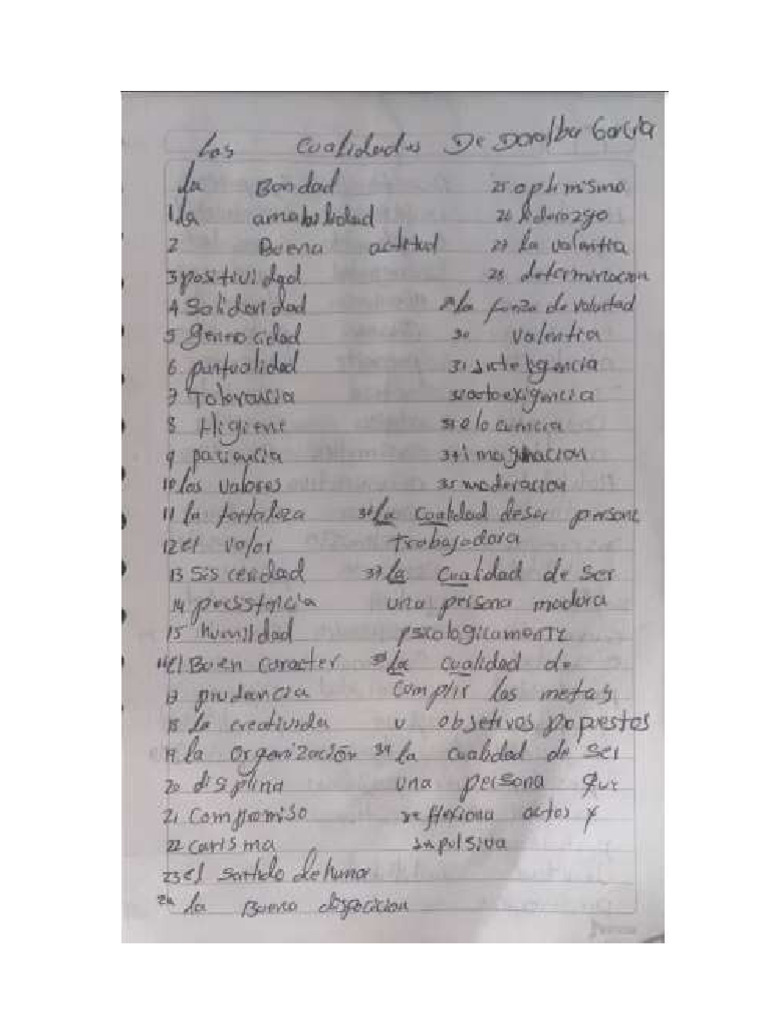 Las Cualidades De Doralba García
La Bondad
1 la amabilidad
2 Buena actitud
3 positividad
4 Solidaridad
5 generocidad
6 puntualidad
7 Tolerancia
8 Higiene
9 paciencia
10 los valores
11 la fortaleza
12 el valor
13 Sis ceridad
14 persistencia
15 humildad
16 el Buen Caracter
17 prudencia
18 la creativida
19 la organización
20 disiplina
21 Compromiso
22 carisma
23 el sentido de humor
24 la Buena disposicion
25 optimismo
26 liderazgo
27 la valentia
28 determinacion
29 la fuerza de voluntad
30 valentia
31 inteligencia
32 autoexigencia
33 elocuencia
34 imaginacion
35 moderacion
36 La Cualidad de ser persona
trabajadora
37 La Cualidad de ser
una persona madura
psicologicamente
38 La cualidad de
Complir las metas
y objetivos propestos
39 la cualidad de ser
una persona que
reflexiona actos y
inpulsiva